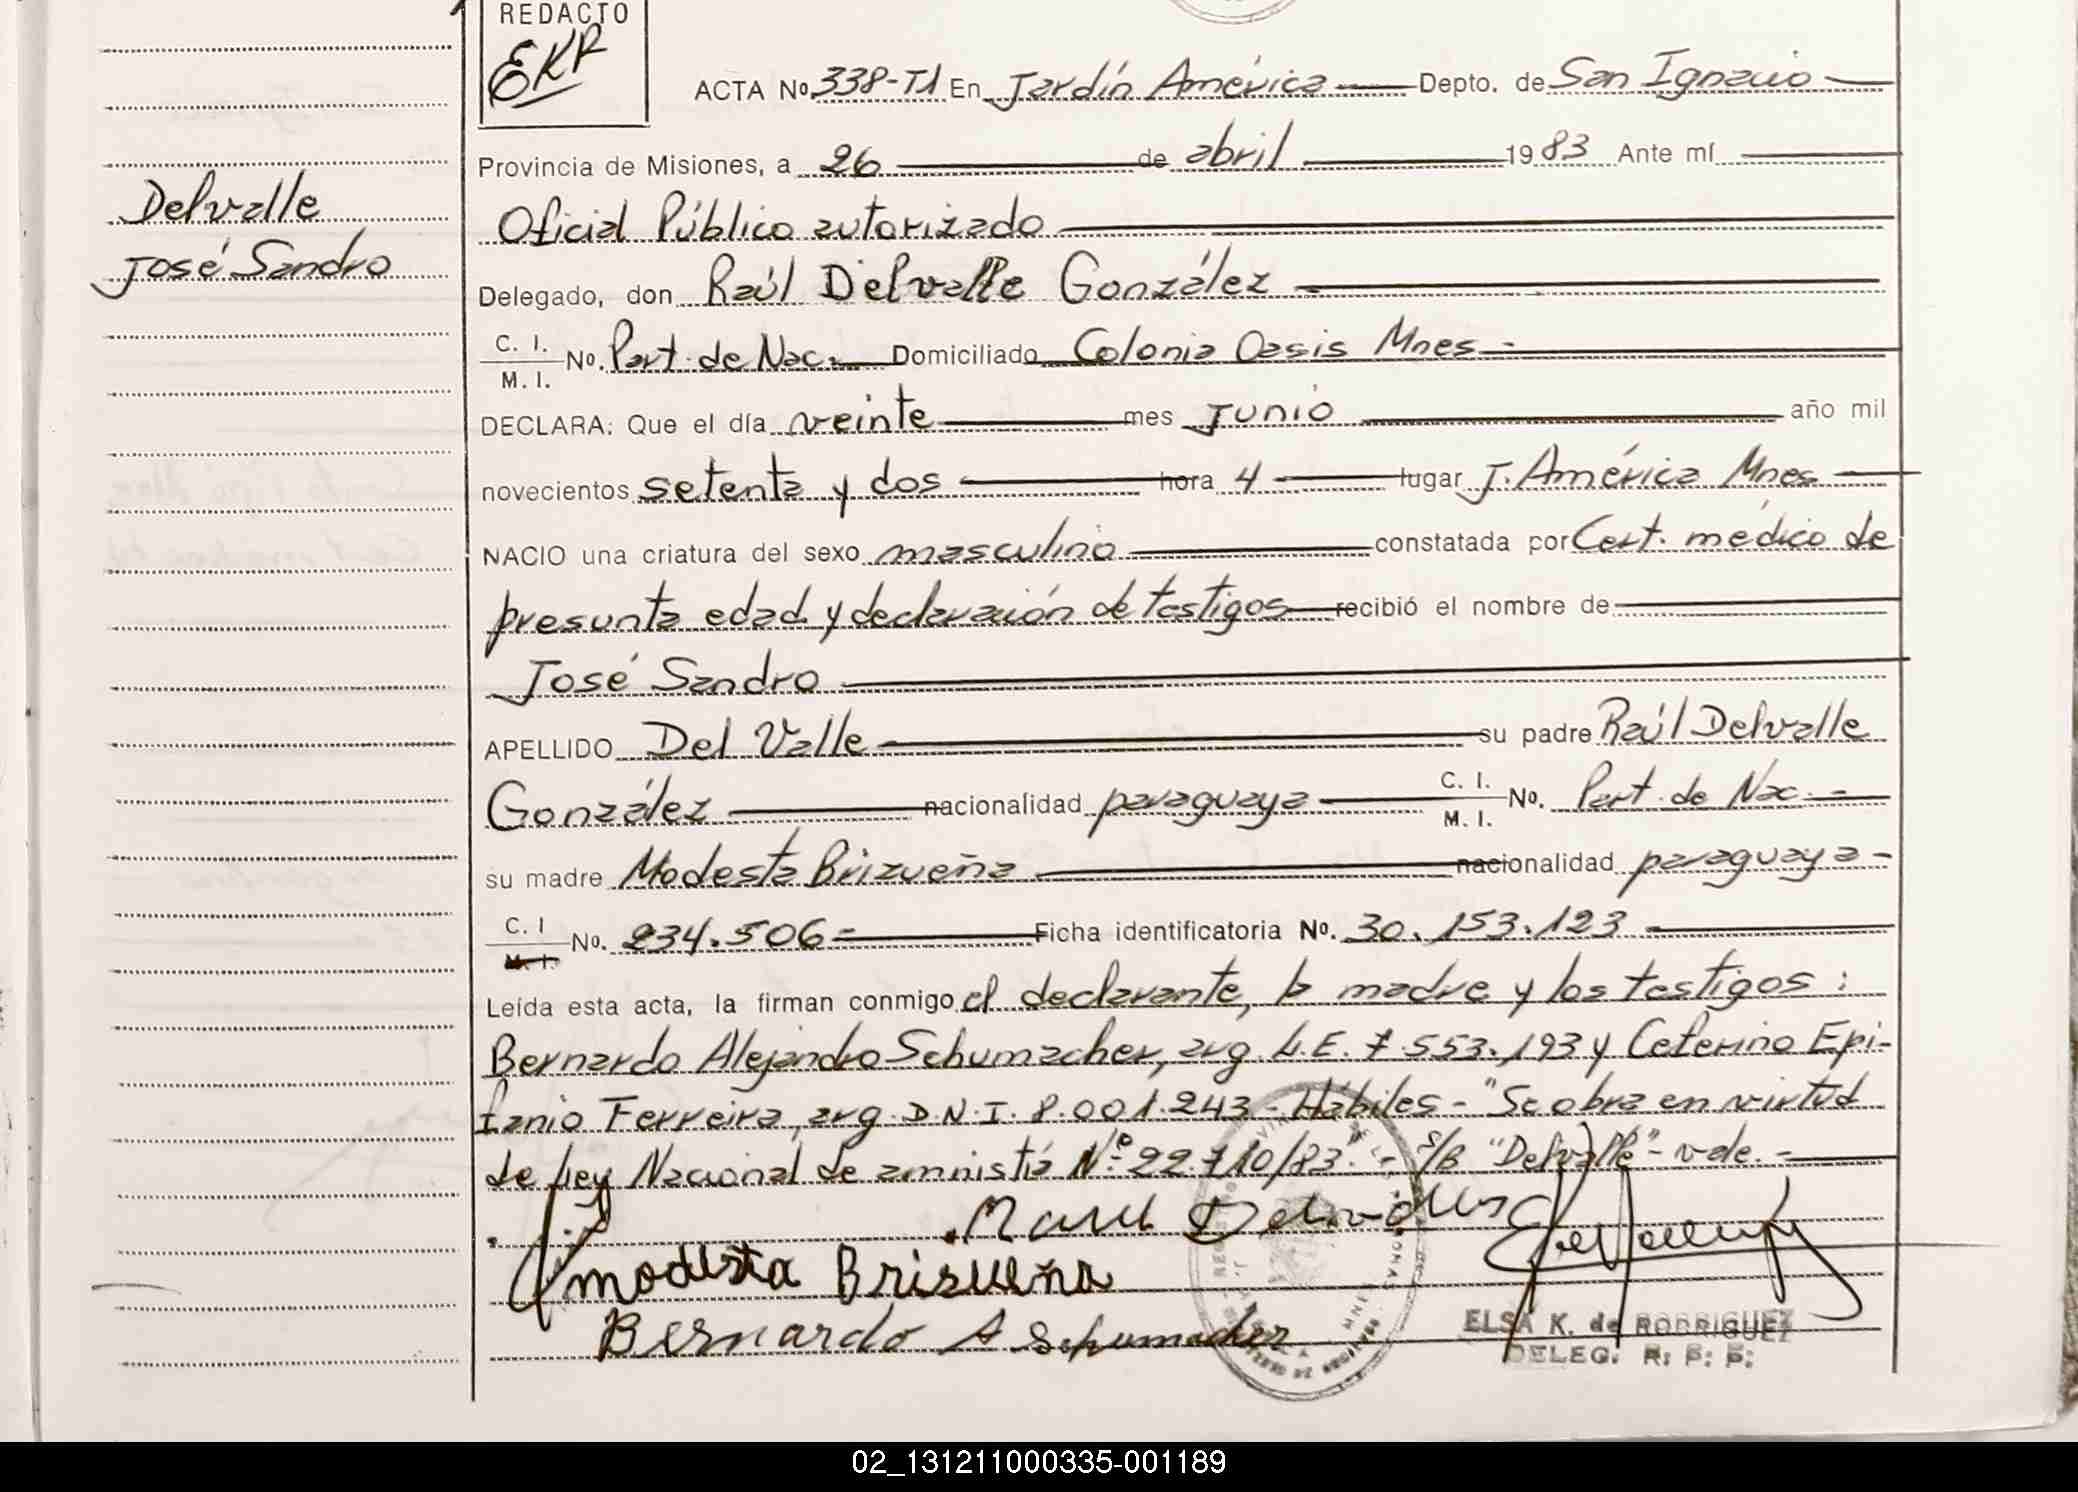 REDACTO
EKR
ACTA No. 338-T1 En Jardín América Depto. de San Ignacio
Provincia de Misiones, a 26 de abril 1983 Ante mí
Delvalle
José Sandro
Oficial Público autorizado
Delegado, don Raúl Delvalle González
C. I.
M. I. No. Part. de Nac. Domiciliado Colonia Oasis Mnes.-
DECLARA: Que el día veinte mes junio año mil
novecientos setenta y dos hora 4 lugar J. América Mnes
NACIO una criatura del sexo masculino constatada por Cert. médico de
presunta edad y declaración de testigos recibió el nombre de
José Sandro
APELLIDO Del Valle su padre Raúl Delvalle
González nacionalidad paraguaya C. I. M. I. No. Part. de Nac.-
su madre Modesta Brizueña nacionalidad paraguaya -
C. I M. I. No. 234.506= Ficha identificatoria No. 30.153.123
Leída esta acta, la firman conmigo el declarante, la madre y los testigos:
Bernardo Alejandro Schumacher, arg. L.E. 7.553.193 y Ceferino Epi-
fanio Ferreira, arg. D.N.I. 8.001.243 - Hábiles - "Se obra en virtud
de Ley Nacional de amnistía Nº 22.710/83". - S/B "Delvalle" - vale. -
Modesta Brisueña
Bernardo A Schumacher
ELSA K. de RODRIGUEZ
DELEG. R. P. P.
02_131211000335-001189